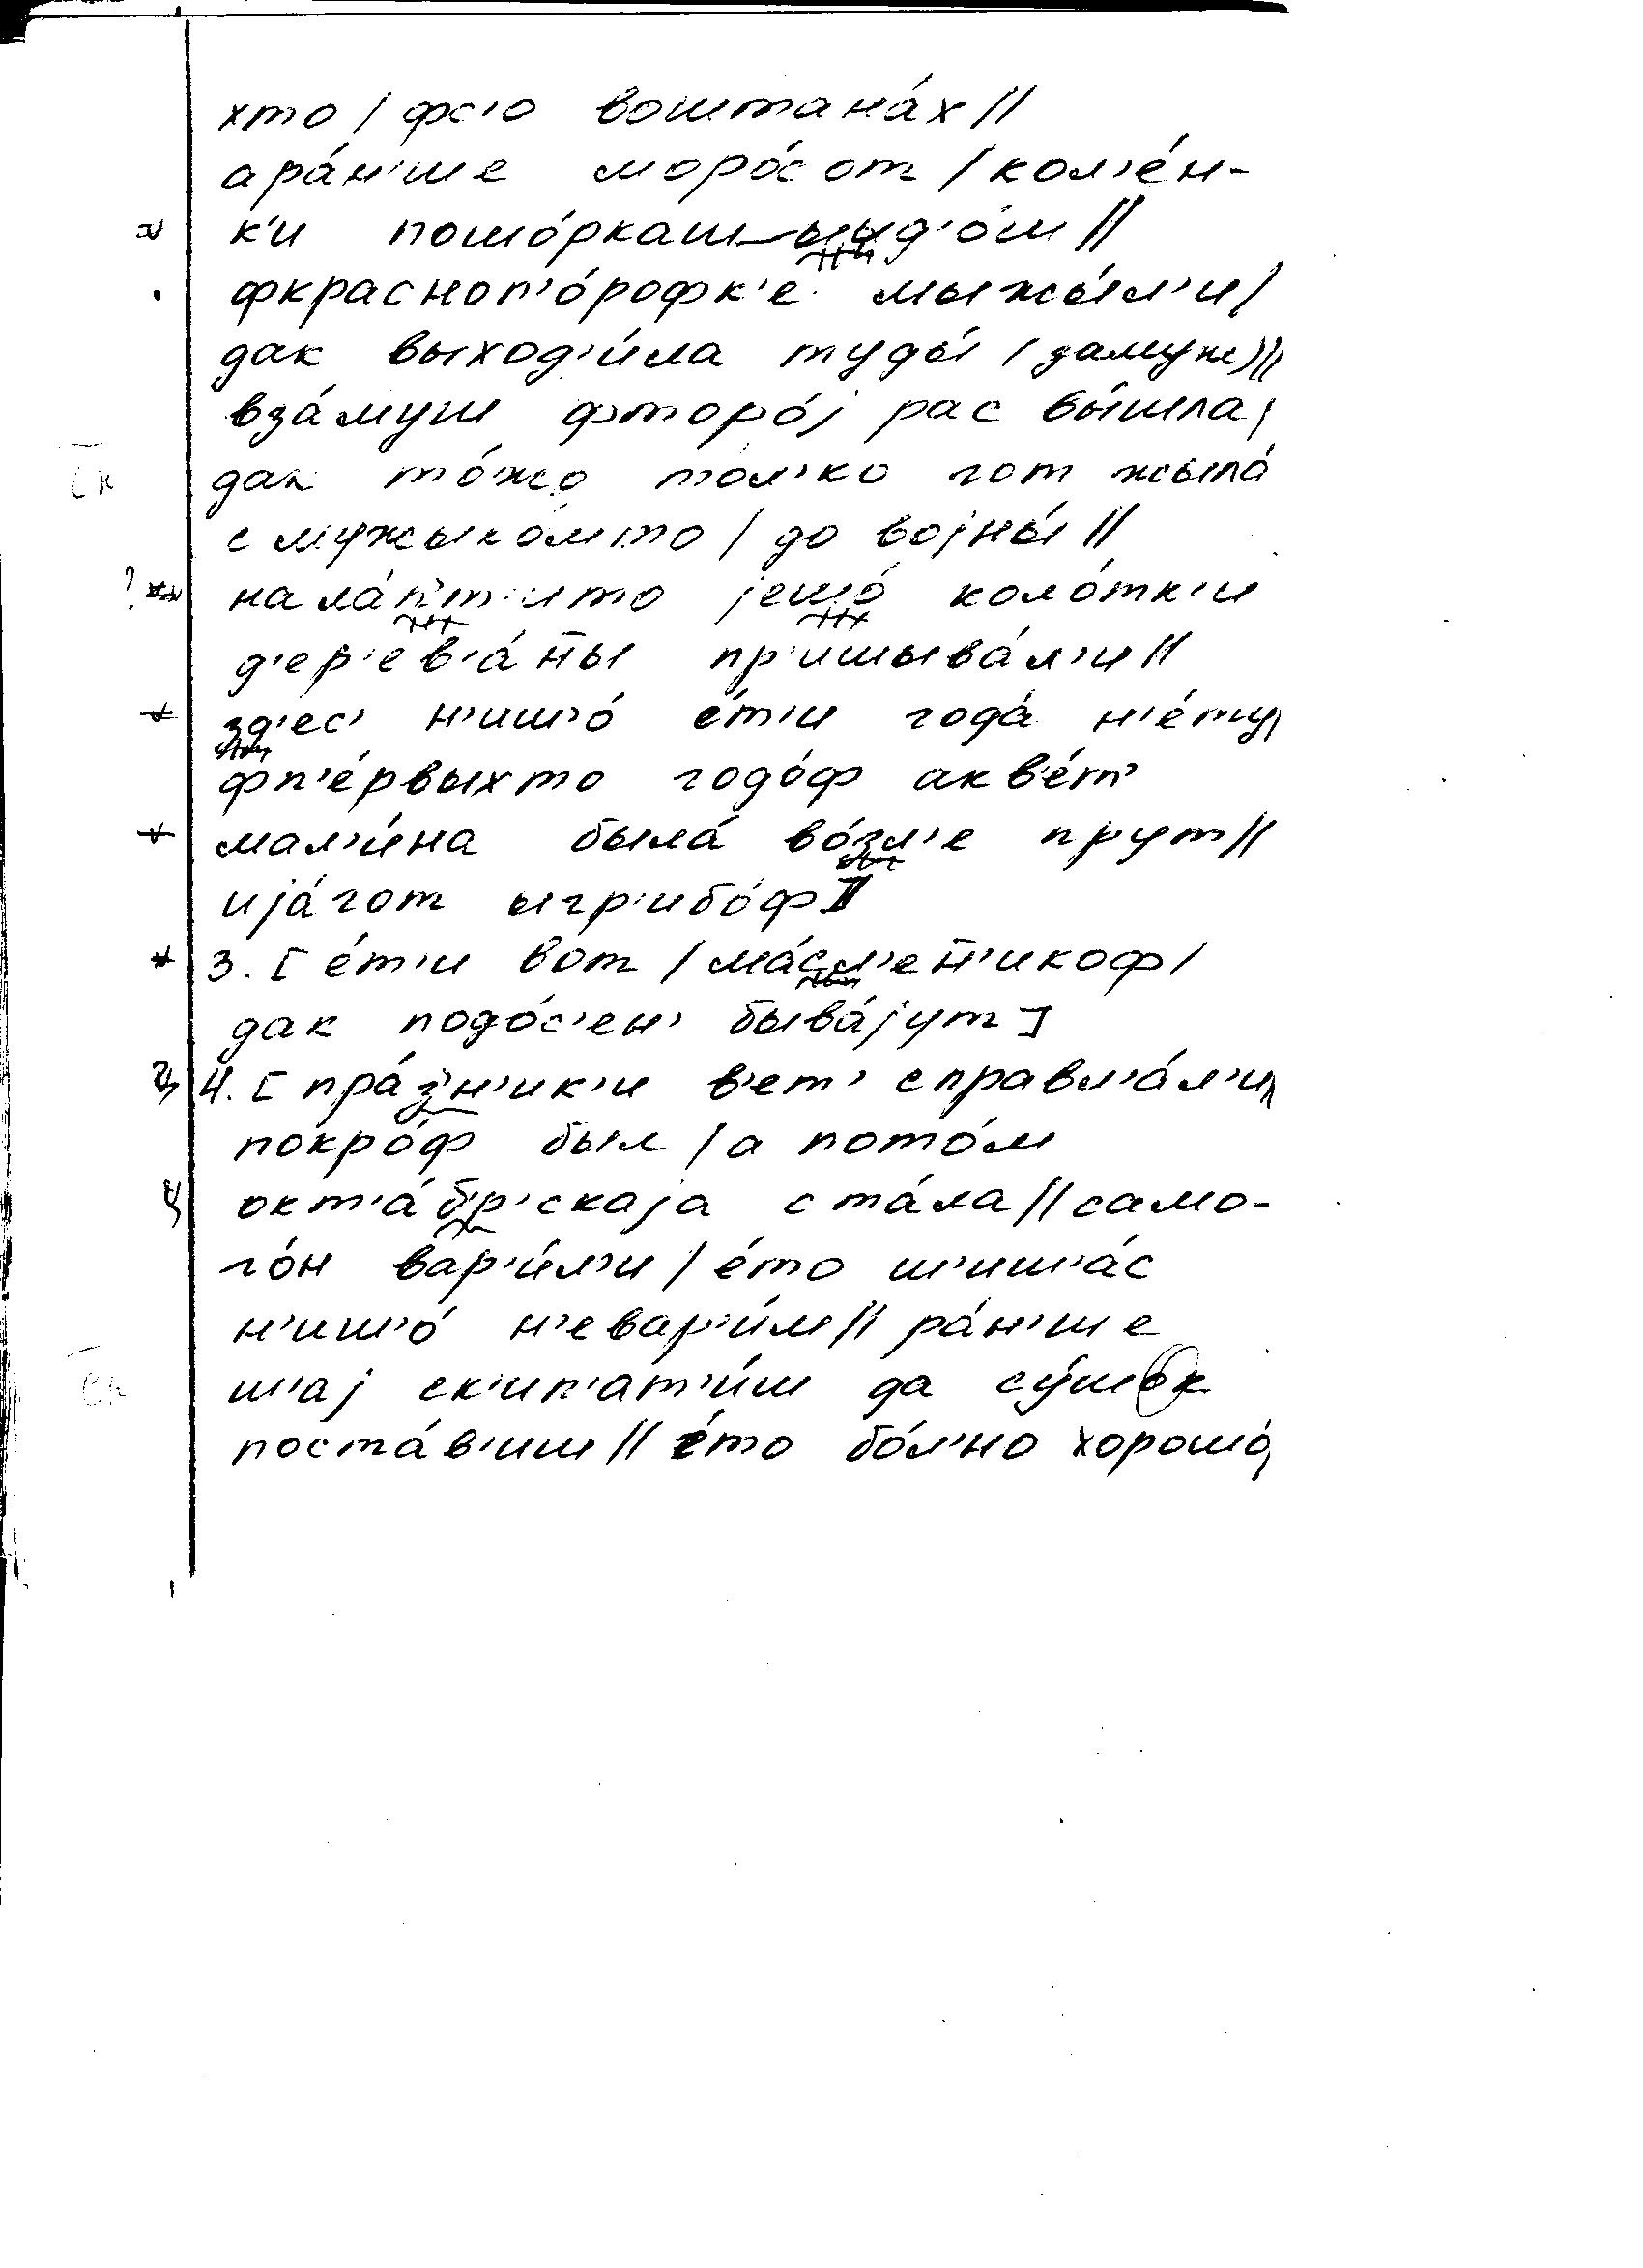 хто / фс'о воштана́х //
ара́н'ше моро́с от / кол'е́н-
к'и пошо́ркаш ыыд'о́ш //
фкрасноп'о́рофк'е мыжы́л'и /
дак выход'и́ла туды́ / замуж //
вза́муш фторо́j рас вы́шла /
дак то́жо тол'ко гот жыла́
с мужыко́мто / до воjны́ //
на ла́пт'ито jешо́ коло́тк'и
д'ер'ев'а́н̄ы пр'ишыва́л'и //
зд'ес' н'иш'о́ е́т'и года́ н'е́ту /
фп'е́рвыхто годо́ф ак в'е́т'
мал'и́на была́ во́зл'е прут //
иjа́гот ыгр'ибо́ф //
3. [ е́т'и вот / ма́сл'ен̄'икоф /
дак подо́с'ен' быва́jут ]
4. [ пра́з'н'ик'и в'ет' справл'а́л'и /
покро́ф был / а пото́м
окт'а́бр'скаjа ста́ла // само-
го́н вар'и́л'и / е́то ш'иш'а́с
н'иш'о́ н'евар'и́м // ра́н'ше
ш'аj ск'ип'ат'и́ш да су́шок
поста́в'иш // е́то бо́л'но хорошо́ /